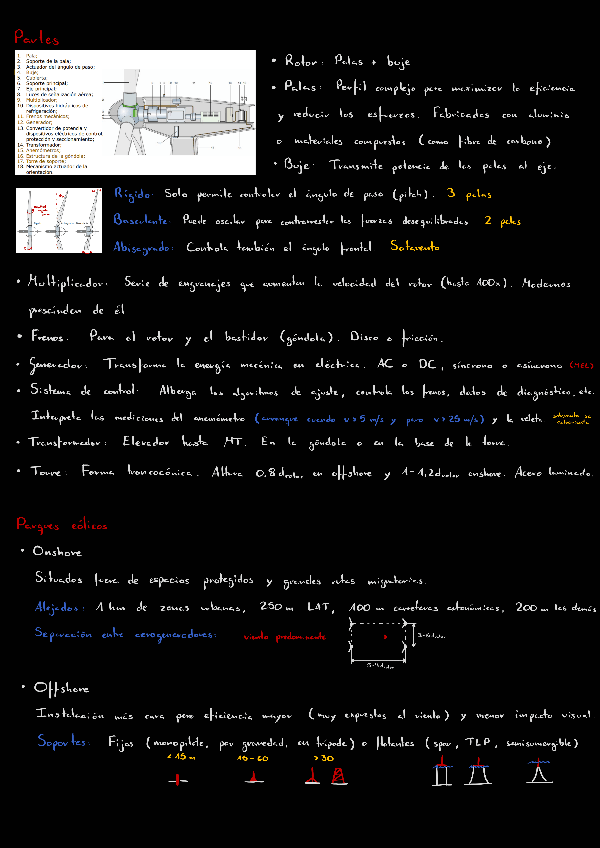 Partes
1. Pala;
2. Soporte de la pala;
3. Actuador del ángulo de paso;
4. Buje;
5. Cubierta;
6. Soporte principal;
7. Eje principal;
8. Luces de señalización aérea;
9. Multiplicador;
10. Dispositivos hidráulicos de
refrigeración;
11. Frenos mecánicos;
12. Generador;
13. Convertidor de potencia y
dispositivos eléctricos de control
protección y seccionamiento;
14. Transformador;
15. Anemómetros;
16. Estructura de la góndola;
17. Torre de soporte;
18. Mecanismo actuador de la
orientación.
• Rotor: Palas + buje
• Palas: Perfil complejo para maximizar la eficiencia
y reducir los esfuerzos. Fabricadas con aluminio
o materiales compuestos (como fibra de carbono)
• Buje: Transmite potencia de las palas al eje.
Rígido: Solo permite controlar el ángulo de paso (pitch). 3 palas
Basculante: Puede oscilar para contrarrestar las fuerzas desequilibradas 2 palas
Abisagrado: Controla también el ángulo frontal Sotavento
• Multiplicador: Serie de engranajes que aumentan la velocidad del rotor (hasta 100x). Modernos
prescinden de él
• Frenos: Para el rotor y el bastidor (góndola). Disco o fricción.
• Generador: Transforma la energía mecánica en eléctrica. AC o DC, síncrono o asíncrono
• Sistema de control: Alberga los algoritmos de ajuste, controla los frenos, datos de diagnóstico, etc.
Interpreta las mediciones del anemómetro (arranque cuando v>5 m/s y paro v>25 m/s) y la veleta
• Transformador: Elevador hasta MT. En la góndola o en la base de la torre.
• Torre: Forma troncocónica. Altura 0,8 d rotor en offshore y 1-1,2 d rotor onshore. Acero laminado.
Parques eólicos
• Onshore
Situados fuera de espacios protegidos y grandes rutas migratorias.
Alejados: 1 km de zonas urbanas, 250 m LAT, 100 m carreteras autonómicas, 200 m las demás
Separación entre aerogeneradores: viento predominante
• Offshore
Instalación más cara pero eficiencia mayor (muy expuestos al viento) y menor impacto visual
Soportes: Fijos (monopilote, por gravedad, en trípode) o flotantes (spar, TLP, semisumergible)
<15 m 10-60 >30